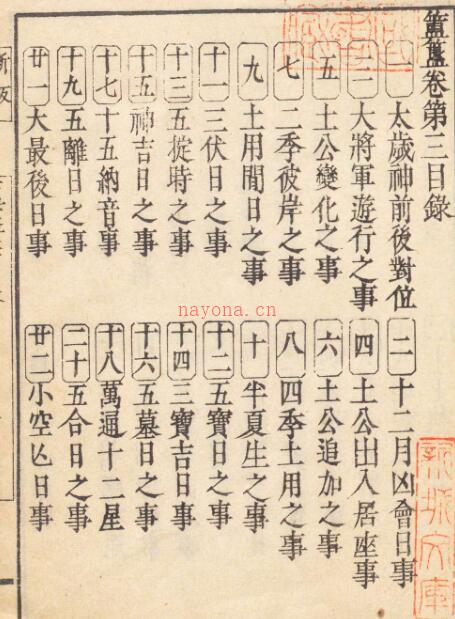 簠簋卷第三目錄
一 太歲神前後對位 二 十二月凶會日事
三 大將軍遊行之事 四 土公出入居座事
五 土公變化之事 六 土公追加之事
七 二季彼岸之事 八 四季土用之事
九 土用間日之事 十 半夏生之事
十一 三伏日之事 十二 五寶日之事
十三 五掟時之事 十四 三寶吉日事
十五 神吉日之事 十六 五墓日之事
十七 十五納音事 十八 萬通十二星
十九 五離日之事 二十 五合日之事
廿一 大最後日事 廿二 小空亡日事
nayona.cn
新城文庫